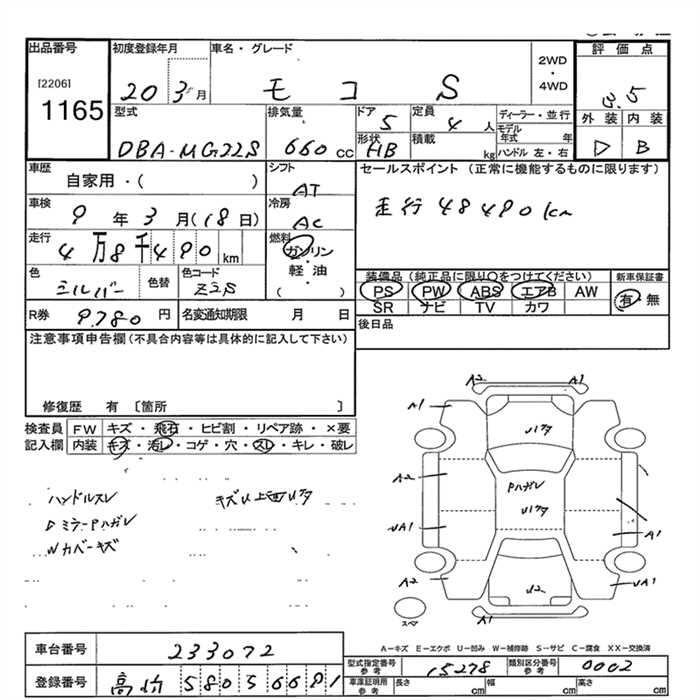 出品番号
[2206]
1165
初度登録年月
20 3月
車名・グレード
モコ S
2WD
・
4WD
評価点
3.5
外装 内装
D B
型式
DBA-MG22S
排気量
660 cc
ドア
5
定員
4 人
ディーラー・並行
モデル
年式 年
形状
HB
積載
kg
ハンドル 左・右
車歴
自家用・( )
シフト
AT
セールスポイント (正常に機能するものに限ります)
走行 48490km
車検
9 年 3 月 (18日)
冷房
AC
走行
4万8千490 km
燃料
ガソリン
・
軽・油
・
( )
色
シルバー
色替
色コード
Z2S
装備品 (純正品に限り○をつけてください)
PS PW ABS エアB AW
SR ナビ TV カワ
新車保証書
有・無
R券
9,780 円
名変通知期限
月 日
後日品
注意事項申告欄(不具合内容等は具体的に記入して下さい)
修復歴 有 〔箇所 〕
検査員
記入欄
FW キズ・飛石・ヒビ割・リペア跡・×要
内装 キズ・汚レ・コゲ・穴・スレ・キレ・破レ
ハンドルスレ
DミラーPハガレ
Wカバーキズ
A2 A1
A1 A1
U1タタ
A2
Pハガレ
U1タタ
UA1
A1
A2
UA1
U2
A1
スペア
A-キズ E-エクボ U-凹み W-補修跡 S-サビ C-腐食 XX-交換済
車台番号
233072
登録番号
高知 580 す 6681
型式指定番号
参考
15278
類別区分番号
参考
0002
車庫証明用
参考
長さ cm
幅 cm
高さ cm